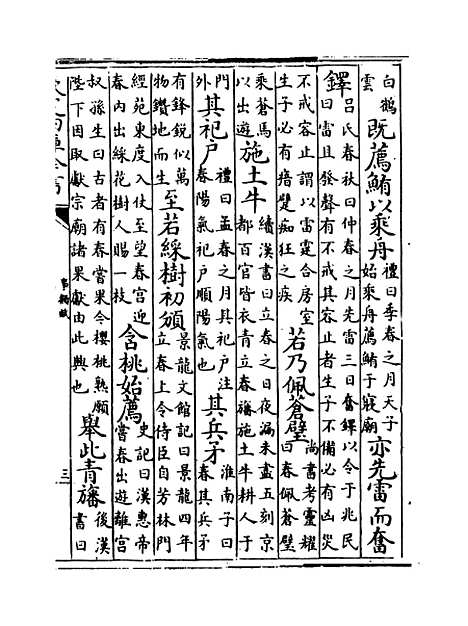 白鵝
雲
既薦鮪以乘舟
禮曰季春之月天子
始乘舟薦鮪于寢廟
亦先雷而奮
鐸
吕氏春秋曰仲春之月先雷三日奮鐸以令于兆民
曰雷且發聲有不戒其容止者生子不備必有凶災
不戒容止謂以雷霆合房室
生子必有瘖躄痴狂之疾
若乃佩蒼璧
尚書考靈耀
曰春佩蒼璧
乘蒼馬
以出遊
施土牛
續漢書曰立春之日夜漏未盡五刻京
都百官皆衣青立春旛施土牛耕人于
門
外
其祀户
禮曰孟春之月其祀户注
春陽氣祀户順陽氣也
其兵矛
淮南子曰
春其兵矛
有鋒銳似萬
物鑽地而生
至若綵樹初頒
景龍文館記曰景龍四年
立春上令侍臣自芳林門
經苑東度入仗至望春宫迎
春内出綵花樹人賜一枝
含桃始薦
史記曰漢惠帝
嘗春出遊離宫
叔孫生曰古者有春嘗果今櫻桃熟願
陛下因取獻宗廟諸果獻由此興也
舉此青旛
後漢
書曰
事類賦
三